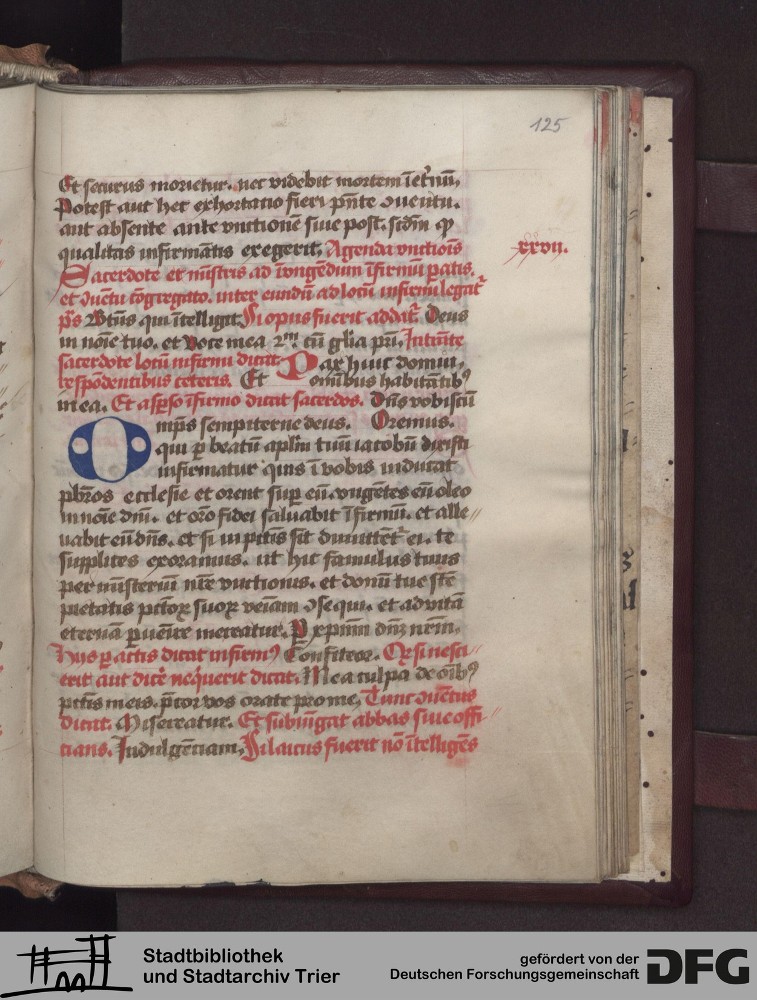 125
Et securus morietur. nec videbit mortem īet'nū,
Potest aut hec exhortatio fieri p̄nte ꝯuentu.
aut absente ante vnctionē siue post. scdm̄ ꝙ
qualitas infirmātis exegerit, Agenda vnctiōis
xxvij.
Sacerdote et mīstris ad īvngēdum īfirmū ꝑatis.
et ꝯuētu cōgregato. inter eundū ad locū infirmi legat᷑
pˢ Btūs qui ītelligit. Si opus fuerit addat᷑. Deus
in noīe tuo. et Voce mea 2ᵐ. cū glīa pri. Intrāte
sacerdote locū infirmi dicat. Pax huic domui,
respōdentibus ceteris. Et omnibus habitātibꝰ
in ea. Et asꝑso īfirmo dicat sacerdos. Dn̄s vobiscū
Omp̄s sempiterne deus. Oremus.
qui ꝑ beatū aplm̄ tuū iacobū dixisti
infirmatur quis ī vobis inducat
pbr̄os ecclesie et orent suꝑ eū. vngētes eū oleo
in noīe dnī. et or̄o fidei saluabit īfirmū. et alle//
uabit eū dn̄s. et si in pctīs sit dimittēt᷑ ei. te
supplices exoramus. ut hic famulus tuus
per mīsteriū nr̄e vnctionis. et donū tue scē
pietatis pctōꝝ suoꝝ veīam ꝯsequi. et ad vitā
eternā ꝑuēire mereatur. P xpīm dn̄m nr̄m.
Hijs ꝑactis dicat infirmꝰ Confiteor. Qr̄ si nesci//
erit aut dicē neq̇uerit dicat. Mea culpa de oībꝰ
pctīs meis. p̄cor vos orate pro me, Tunc ꝯuētus
dicat. Misereatur. Et subiūgat abbas siue offi//
cians. Indulgētiam, Si laicus fuerit nō ītelligēs
Stadtbibliothek
und Stadtarchiv Trier
gefördert von der
Deutschen Forschungsgemeinschaft
DFG